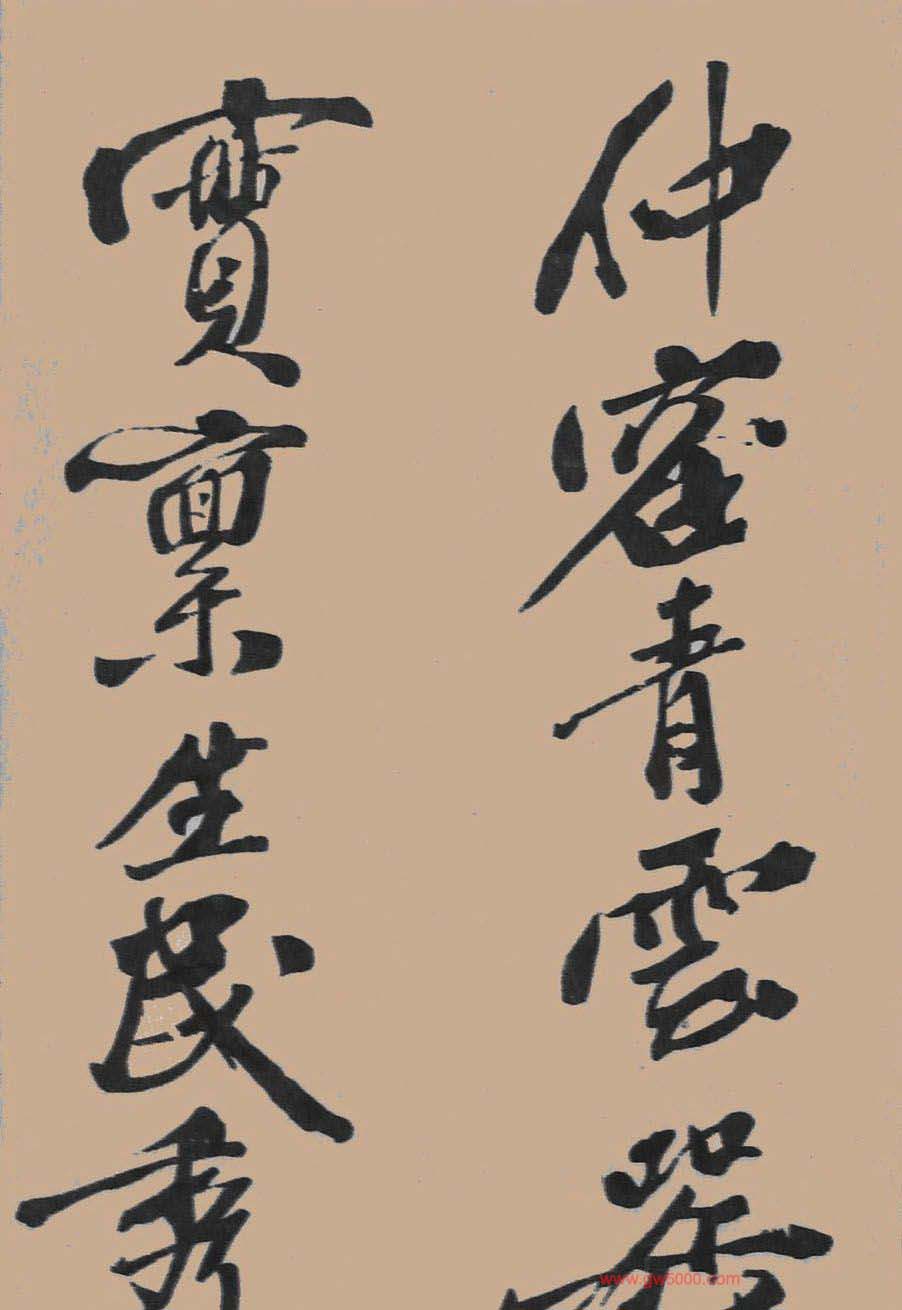 仲容青雲器
實稟生民秀
www.gw5000.com